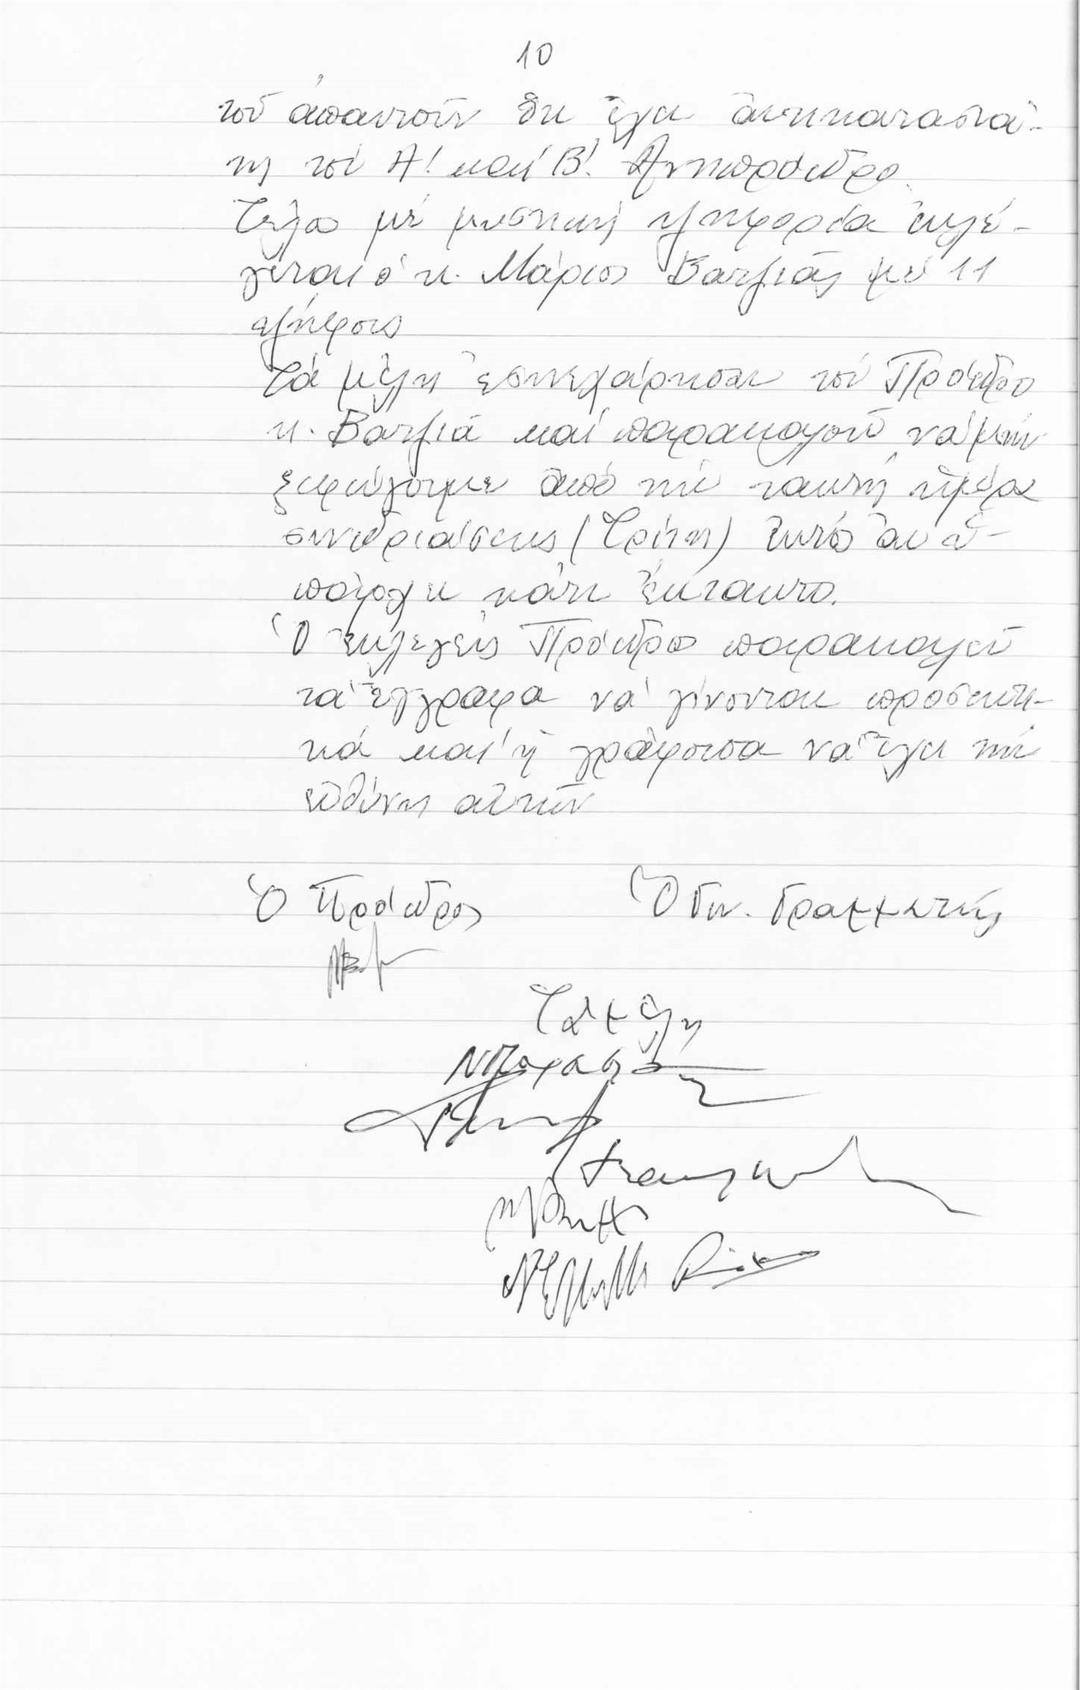 10
τοῦ ἀπαντοῦν ὅτι ἔχει ἀντικαταστά-
τη τόν Α! καί Β! Ἀντιπρόεδρο.
Τέλος μέ μυστική ψηφοφορία ἐκλέ-
γεται ὁ κ. Μάριος Βατζιᾶς μέ 11
ψήφους
Τά μέλη ἐσυνεχάρησαν τόν Πρόεδρο
κ. Βατζιᾶ καί παρακαλοῦν νά μήν
ξεφεύγουμε ἀπό τήν τακτή ἡμέρα
συνεδριάσεως (Τρίτη) ἐκτός ἄν ὑ-
πάρχει κάτι ἔκτακτο.
Ὁ ἐκλεγείς Πρόεδρος παρακαλεῖ
τά ἔγγραφα νά γίνονται προσεκτι-
κά καί ἡ γράφουσα νά ἔχει τήν
εὐθύνη αὐτῶν
Ὁ Πρόεδρος Ὁ Γεν. Γραμματεύς
Τά μέλη